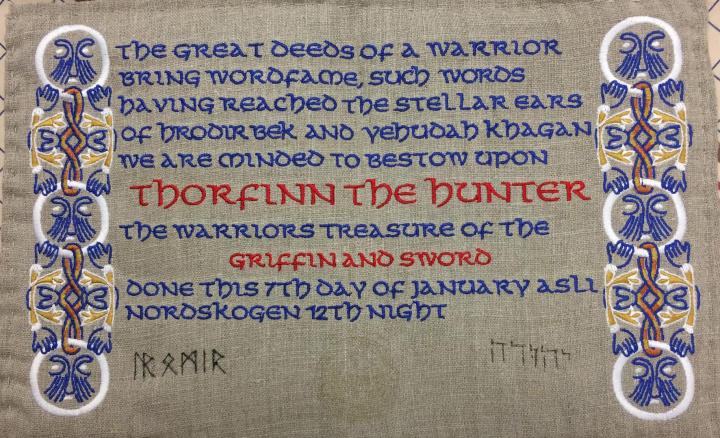 THE GREAT DEEDS OF A WARRIOR
BRING WORDFAME, SUCH WORDS
HAVING REACHED THE STELLAR EARS
OF HRODIR BEK AND YEHUDAH KHAGAN
WE ARE MINDED TO BESTOW UPON
THORFINN THE HUNTER
THE WARRIORS TREASURE OF THE
GRIFFIN AND SWORD
DONE THIS 7TH DAY OF JANUARY ASLI
NORDSKOGEN 12TH NIGHT